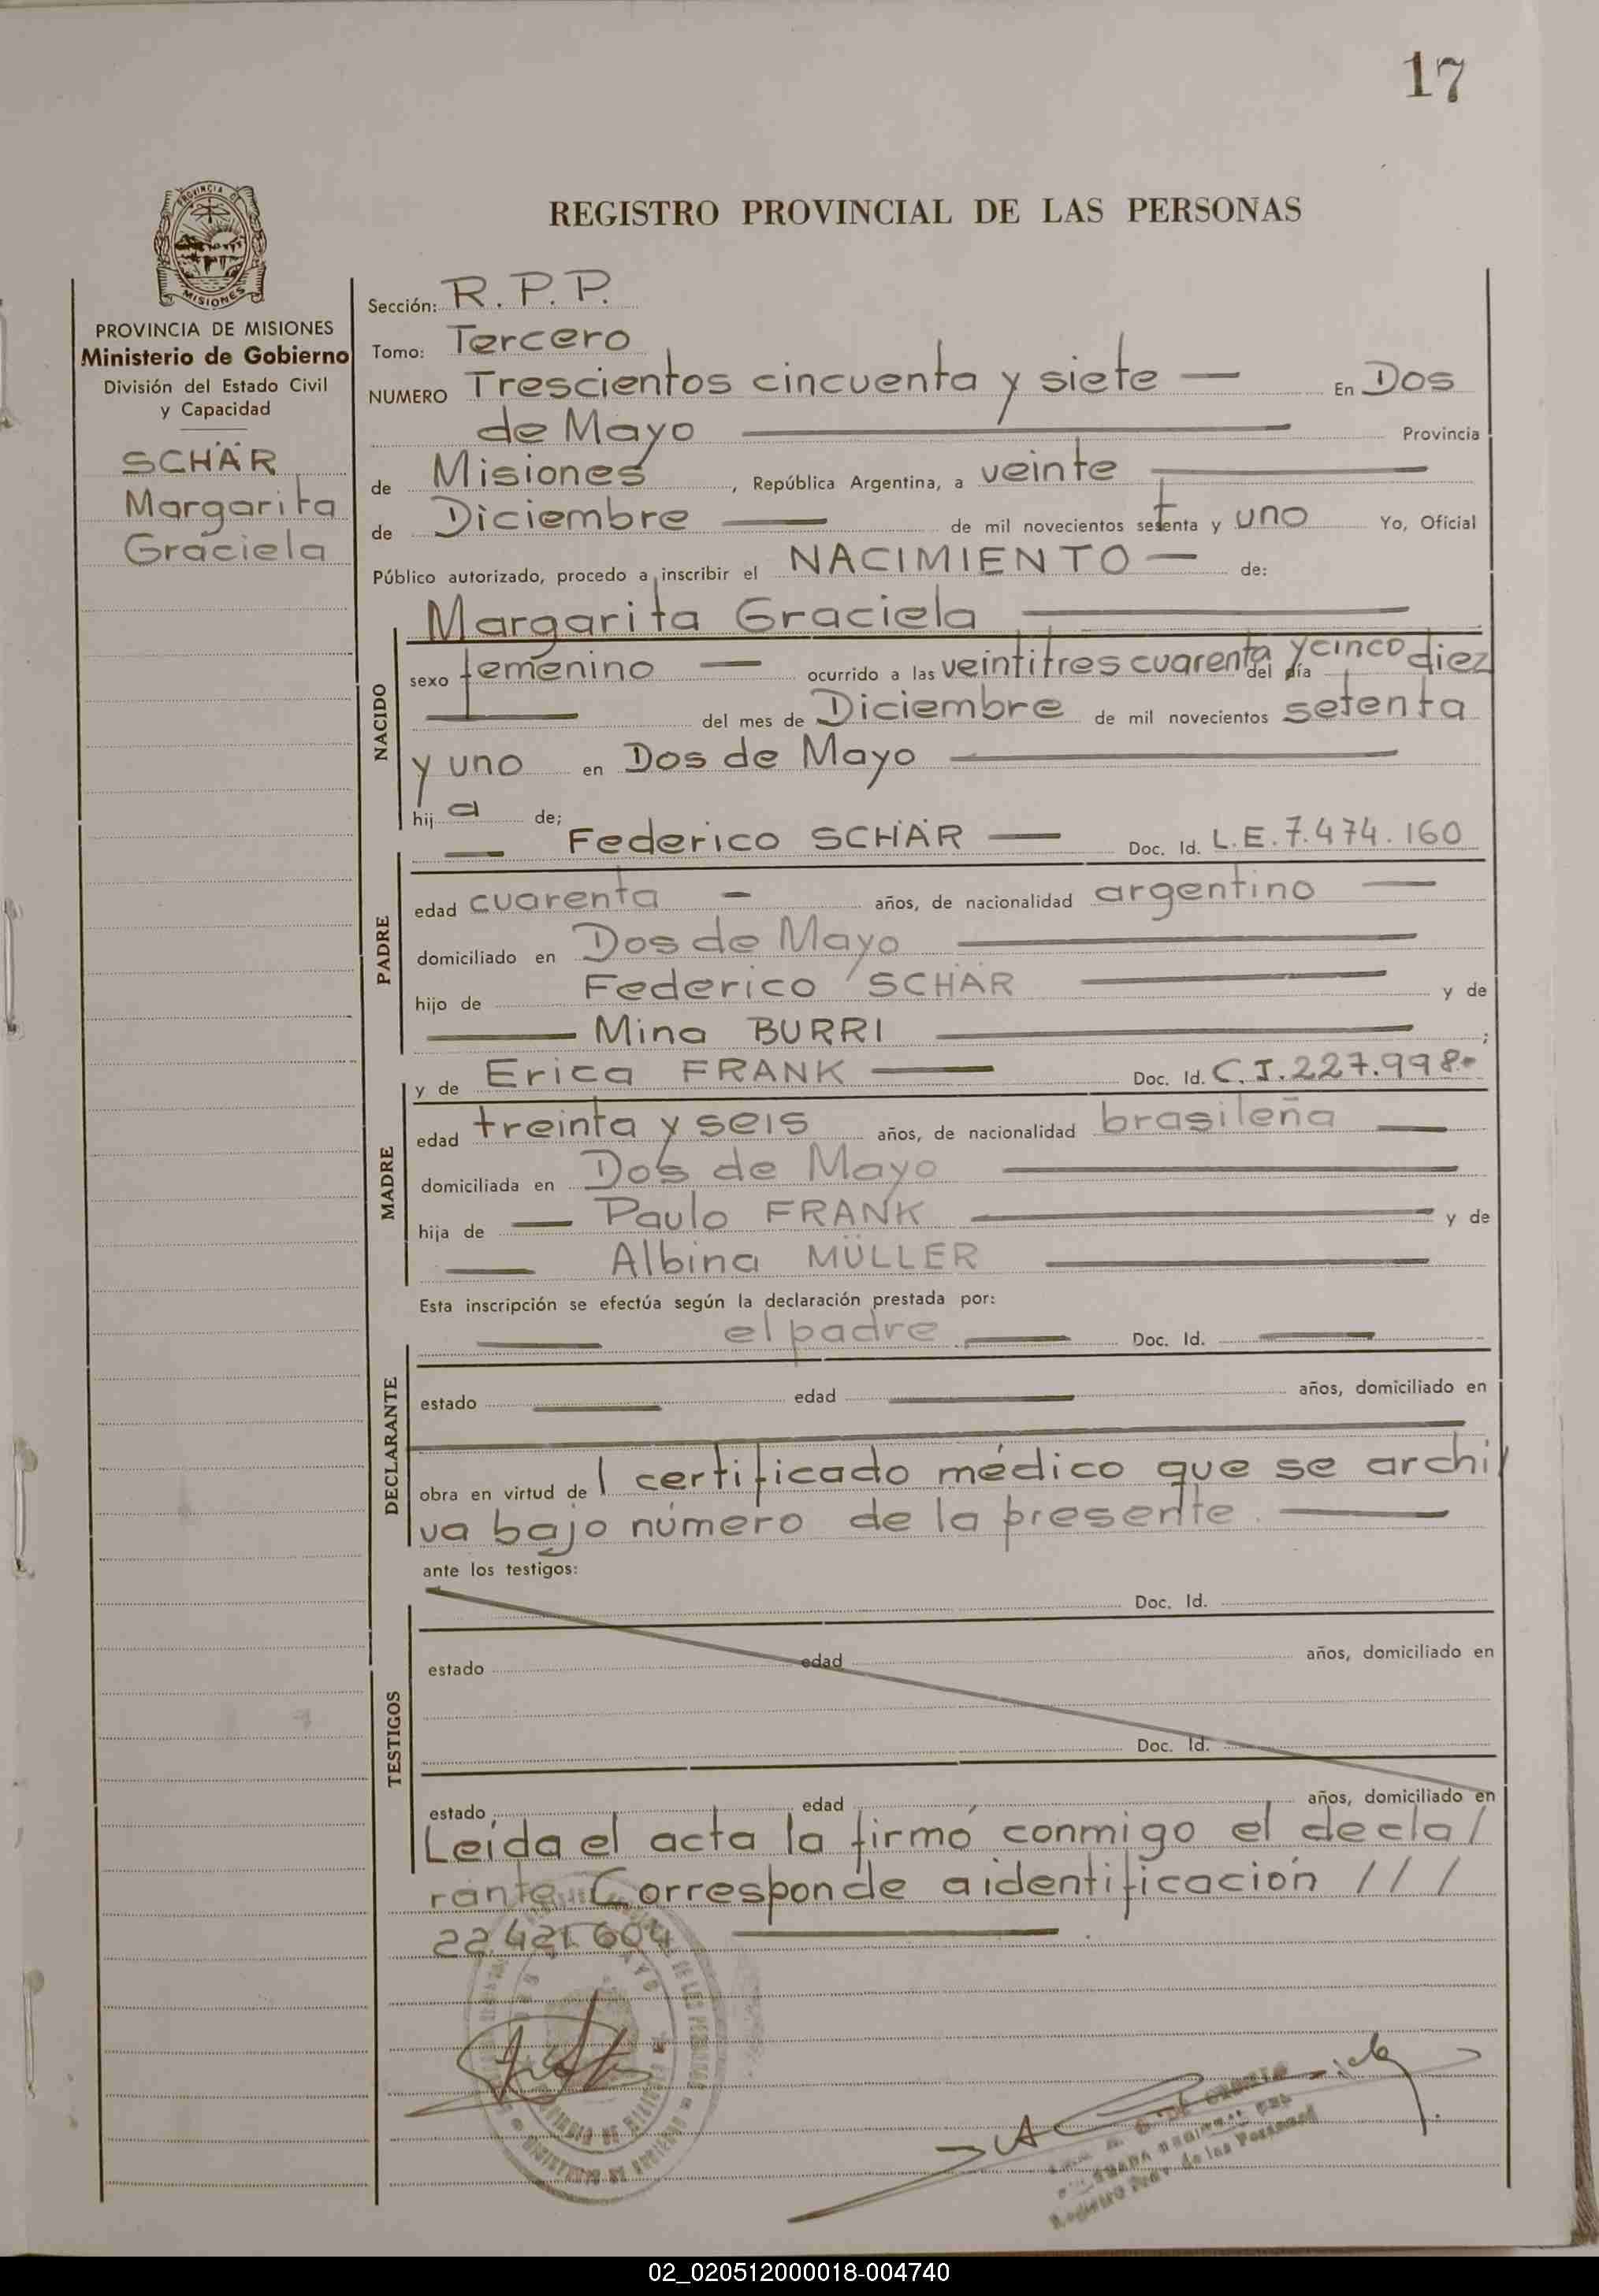 17
PROVINCIA DE MISIONES
REGISTRO PROVINCIAL DE LAS PERSONAS
PROVINCIA DE MISIONES
Ministerio de Gobierno
División del Estado Civil
y Capacidad
SCHÄR
Margarita
Graciela
Sección: R.P.P.
Tomo: Tercero
NUMERO Trescientos cincuenta y siete — En Dos
de Mayo — Provincia
de Misiones, República Argentina, a veinte —
de Diciembre — de mil novecientos setenta y uno Yo, Oficial
Público autorizado, procedo a inscribir el NACIMIENTO — de:
NACIDO
Margarita Graciela —
sexo femenino — ocurrido a las veintitres cuarenta y cinco del día diez
— del mes de Diciembre de mil novecientos setenta
y uno en Dos de Mayo —
hij a de;
PADRE
— Federico SCHÄR — Doc. Id. L.E. 7.474.160
edad cuarenta — años, de nacionalidad argentino —
domiciliado en Dos de Mayo —
hijo de Federico SCHÄR — y de
— Mina BURRI — ;
MADRE
y de Erica FRANK — Doc. Id. C.I. 227.998.-
edad treinta y seis años, de nacionalidad brasileña —
domiciliada en Dos de Mayo —
hija de — Paulo FRANK — y de
— Albina MÜLLER —
Esta inscripción se efectúa según la declaración prestada por:
DECLARANTE
— el padre — Doc. Id. —
estado — edad — años, domiciliado en
obra en virtud de l certificado médico que se archi/
va bajo número de la presente. —
ante los testigos:
TESTIGOS
Doc. Id.
estado edad años, domiciliado en
Doc. Id.
estado edad años, domiciliado en
Leída el acta la firmó conmigo el decla/
rante. Corresponde a identificación ///
22.421.604 — .
Registro Prov. de las Personas
02_020512000018-004740